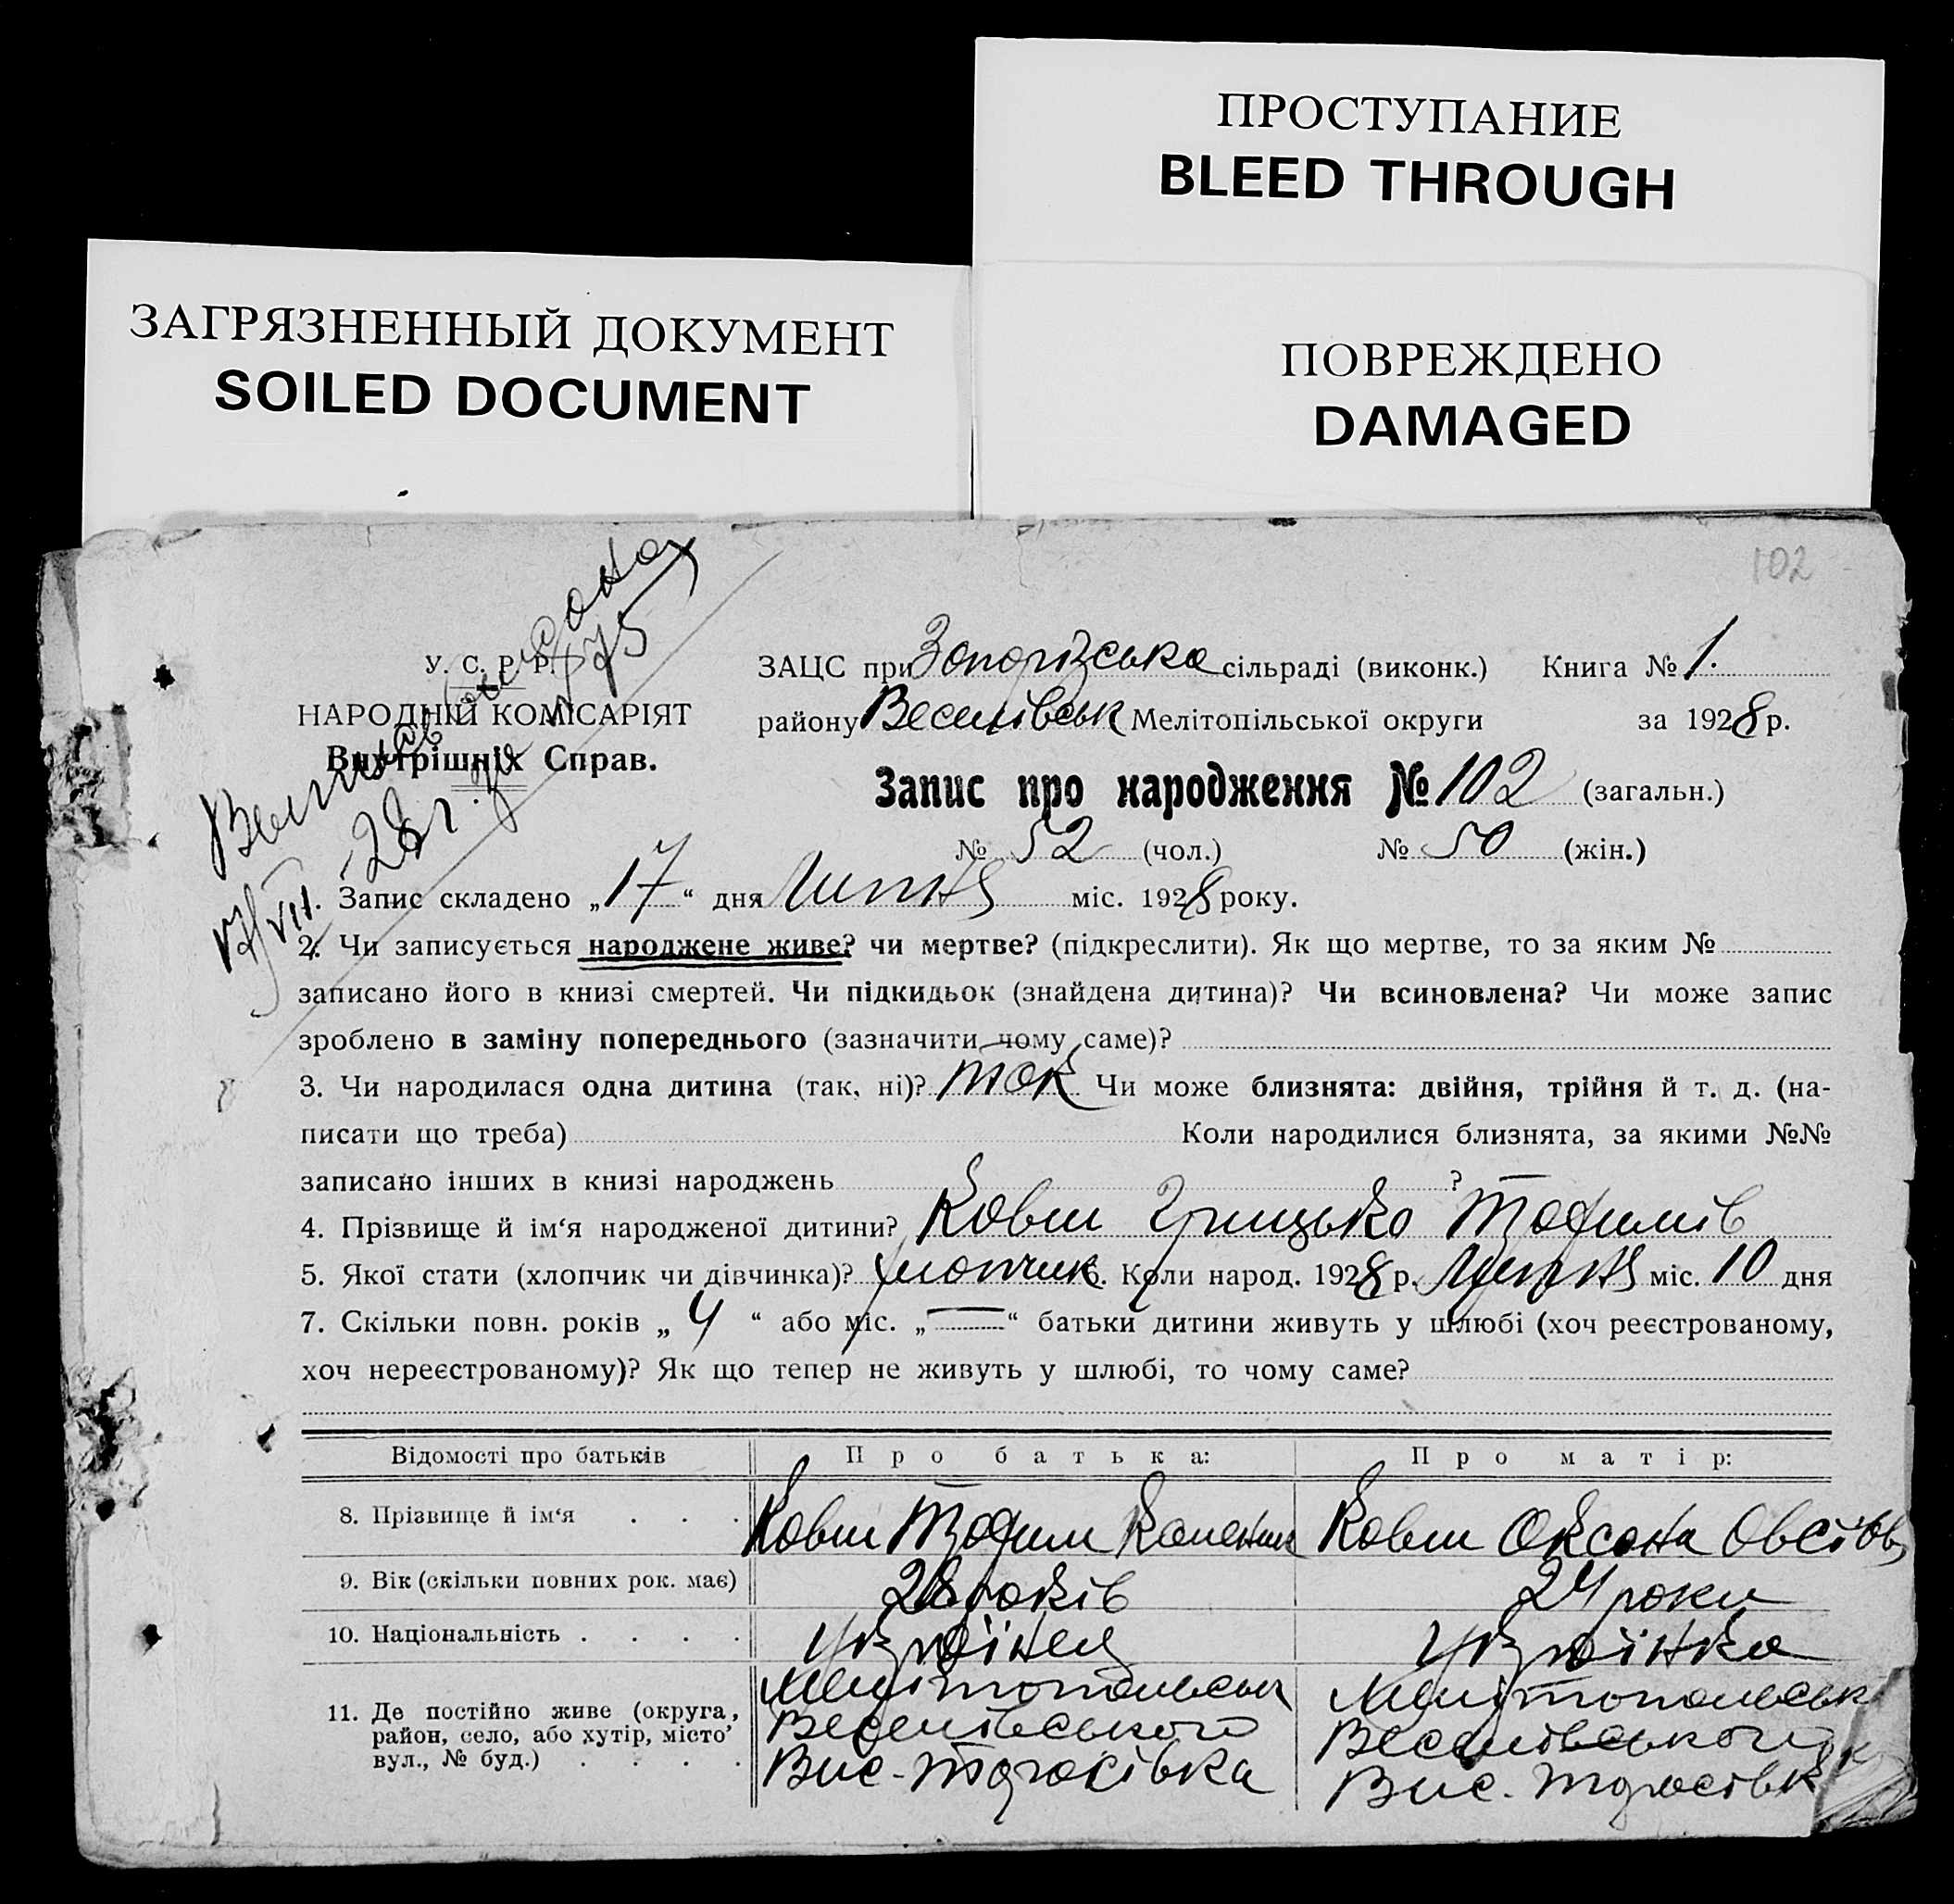 ПРОСТУПАНИЕ
BLEED THROUGH
ЗАГРЯЗНЕННЫЙ ДОКУМЕНТ
SOILED DOCUMENT
ПОВРЕЖДЕНО
DAMAGED
102
У. С. Р. Р.
НАРОДНІЙ КОМІСАРІЯТ
Внутрішніх Справ.
28 г. за № 475
17/VII.
ЗАЦС при Запорізська сільраді (виконк.) Книга № 1.
району Веселівськ Мелітопільської округи за 1928 р.
Запис про народження № 102 (загальн.)
№ 52 (чол.) № 50 (жін.)
1. Запис складено „17“ дня Липня міс. 1928 року.
2. Чи записується народжене живе? чи мертве? (підкреслити). Як що мертве, то за яким №
записано його в книзі смертей. Чи підкидьок (знайдена дитина)? Чи всиновлена? Чи може запис
зроблено в заміну попереднього (зазначити чому саме)?
3. Чи народилася одна дитина (так, ні)? так Чи може близнята: двійня, трійня й т. д. (на-
писати що треба) Коли народилися близнята, за якими №№
записано інших в книзі народжень ?
4. Прізвище й ім‘я народженої дитини? Ковш Грицько Тофимів
5. Якої стати (хлопчик чи дівчинка)? хлопчик 6. Коли народ. 1928 р. Липня міс. 10 дня
7. Скільки повн. років „4“ або міс. „—“ батьки дитини живуть у шлюбі (хоч реєстрованому,
хоч нереєстрованому)? Як що тепер не живуть у шлюбі, то чому саме?
Відомості про батьків Про батька: Про матір:
8. Прізвище й ім‘я . . . Ковш Тофим Ковш Оксана Овсіїв
9. Вік (скільки повних рок. має) 28 років 24 роки
10. Національність . . . . Українец Українка
11. Де постійно живе (округа, район, село, або хутір, місто’ вул., № буд.) . . . .
Мелітопольськ Мелітопольськ
Веселівського Веселівського
Вис. Тарасівка Вис. Тарасівк